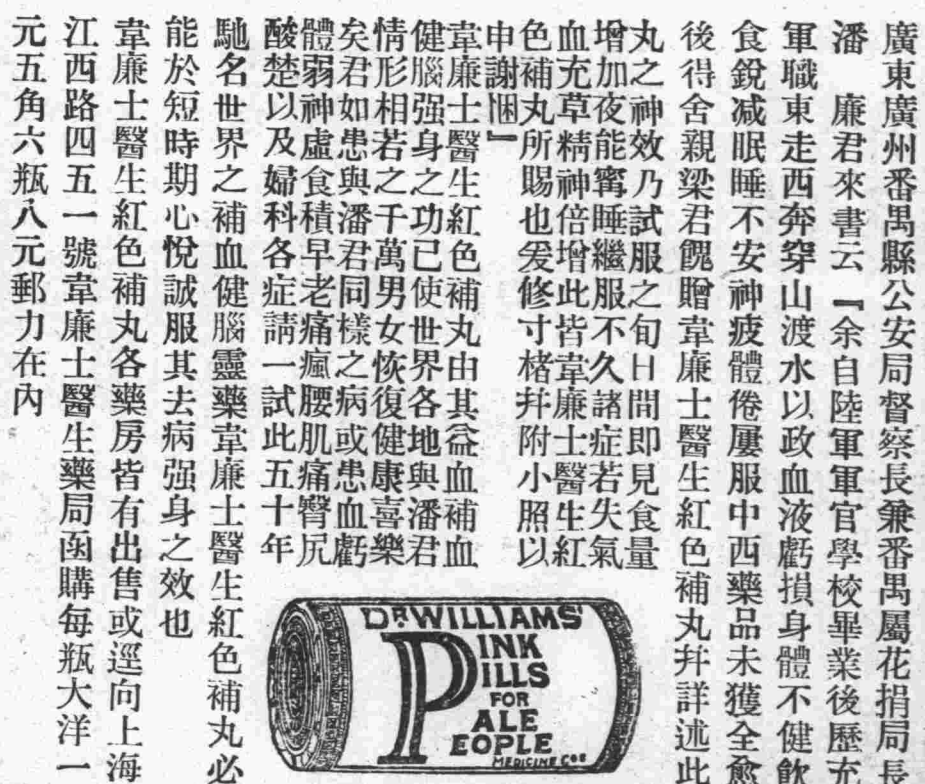 廣東廣州番禺縣公安局督察長兼番禺屬花捐局長
潘　廉君來書云『余自陸軍軍官學校畢業後歷充
軍職東走西奔穿山渡水以政血液虧損身體不健飲
食銳减眠睡不安神疲體倦屢服中西藥品未獲全愈
後得舍親梁君餽贈韋廉士醫生紅色補丸幷詳述此
丸之神效乃試服之旬日間即見食量
增加夜能寗睡繼服不久諸症若失氣
血充草精神倍增此皆韋廉士醫生紅
色補丸所賜也爰修寸楮幷附小照以
申謝悃』
韋廉士醫生紅色補丸由其益血補血
健腦强身之功已使世界各地與潘君
情形相若之千萬男女恢復健康喜樂
矣君如患與潘君同樣之病或患血虧
體弱神虛食積早老痛瘋腰肌痛臀尻
酸楚以及婦科各症請一試此五十年
馳名世界之補血健腦靈藥韋廉士醫生紅色補丸必
能於短時期心悅誠服其去病强身之效也
韋廉士醫生紅色補丸各藥房皆有出售或逕向上海
江西路四五一號韋廉士醫生藥局函購每瓶大洋一
元五角六瓶八元郵力在內
DR WILLIAMS'
PINK
PILLS
FOR
PALE
PEOPLE
MEDICINE Co